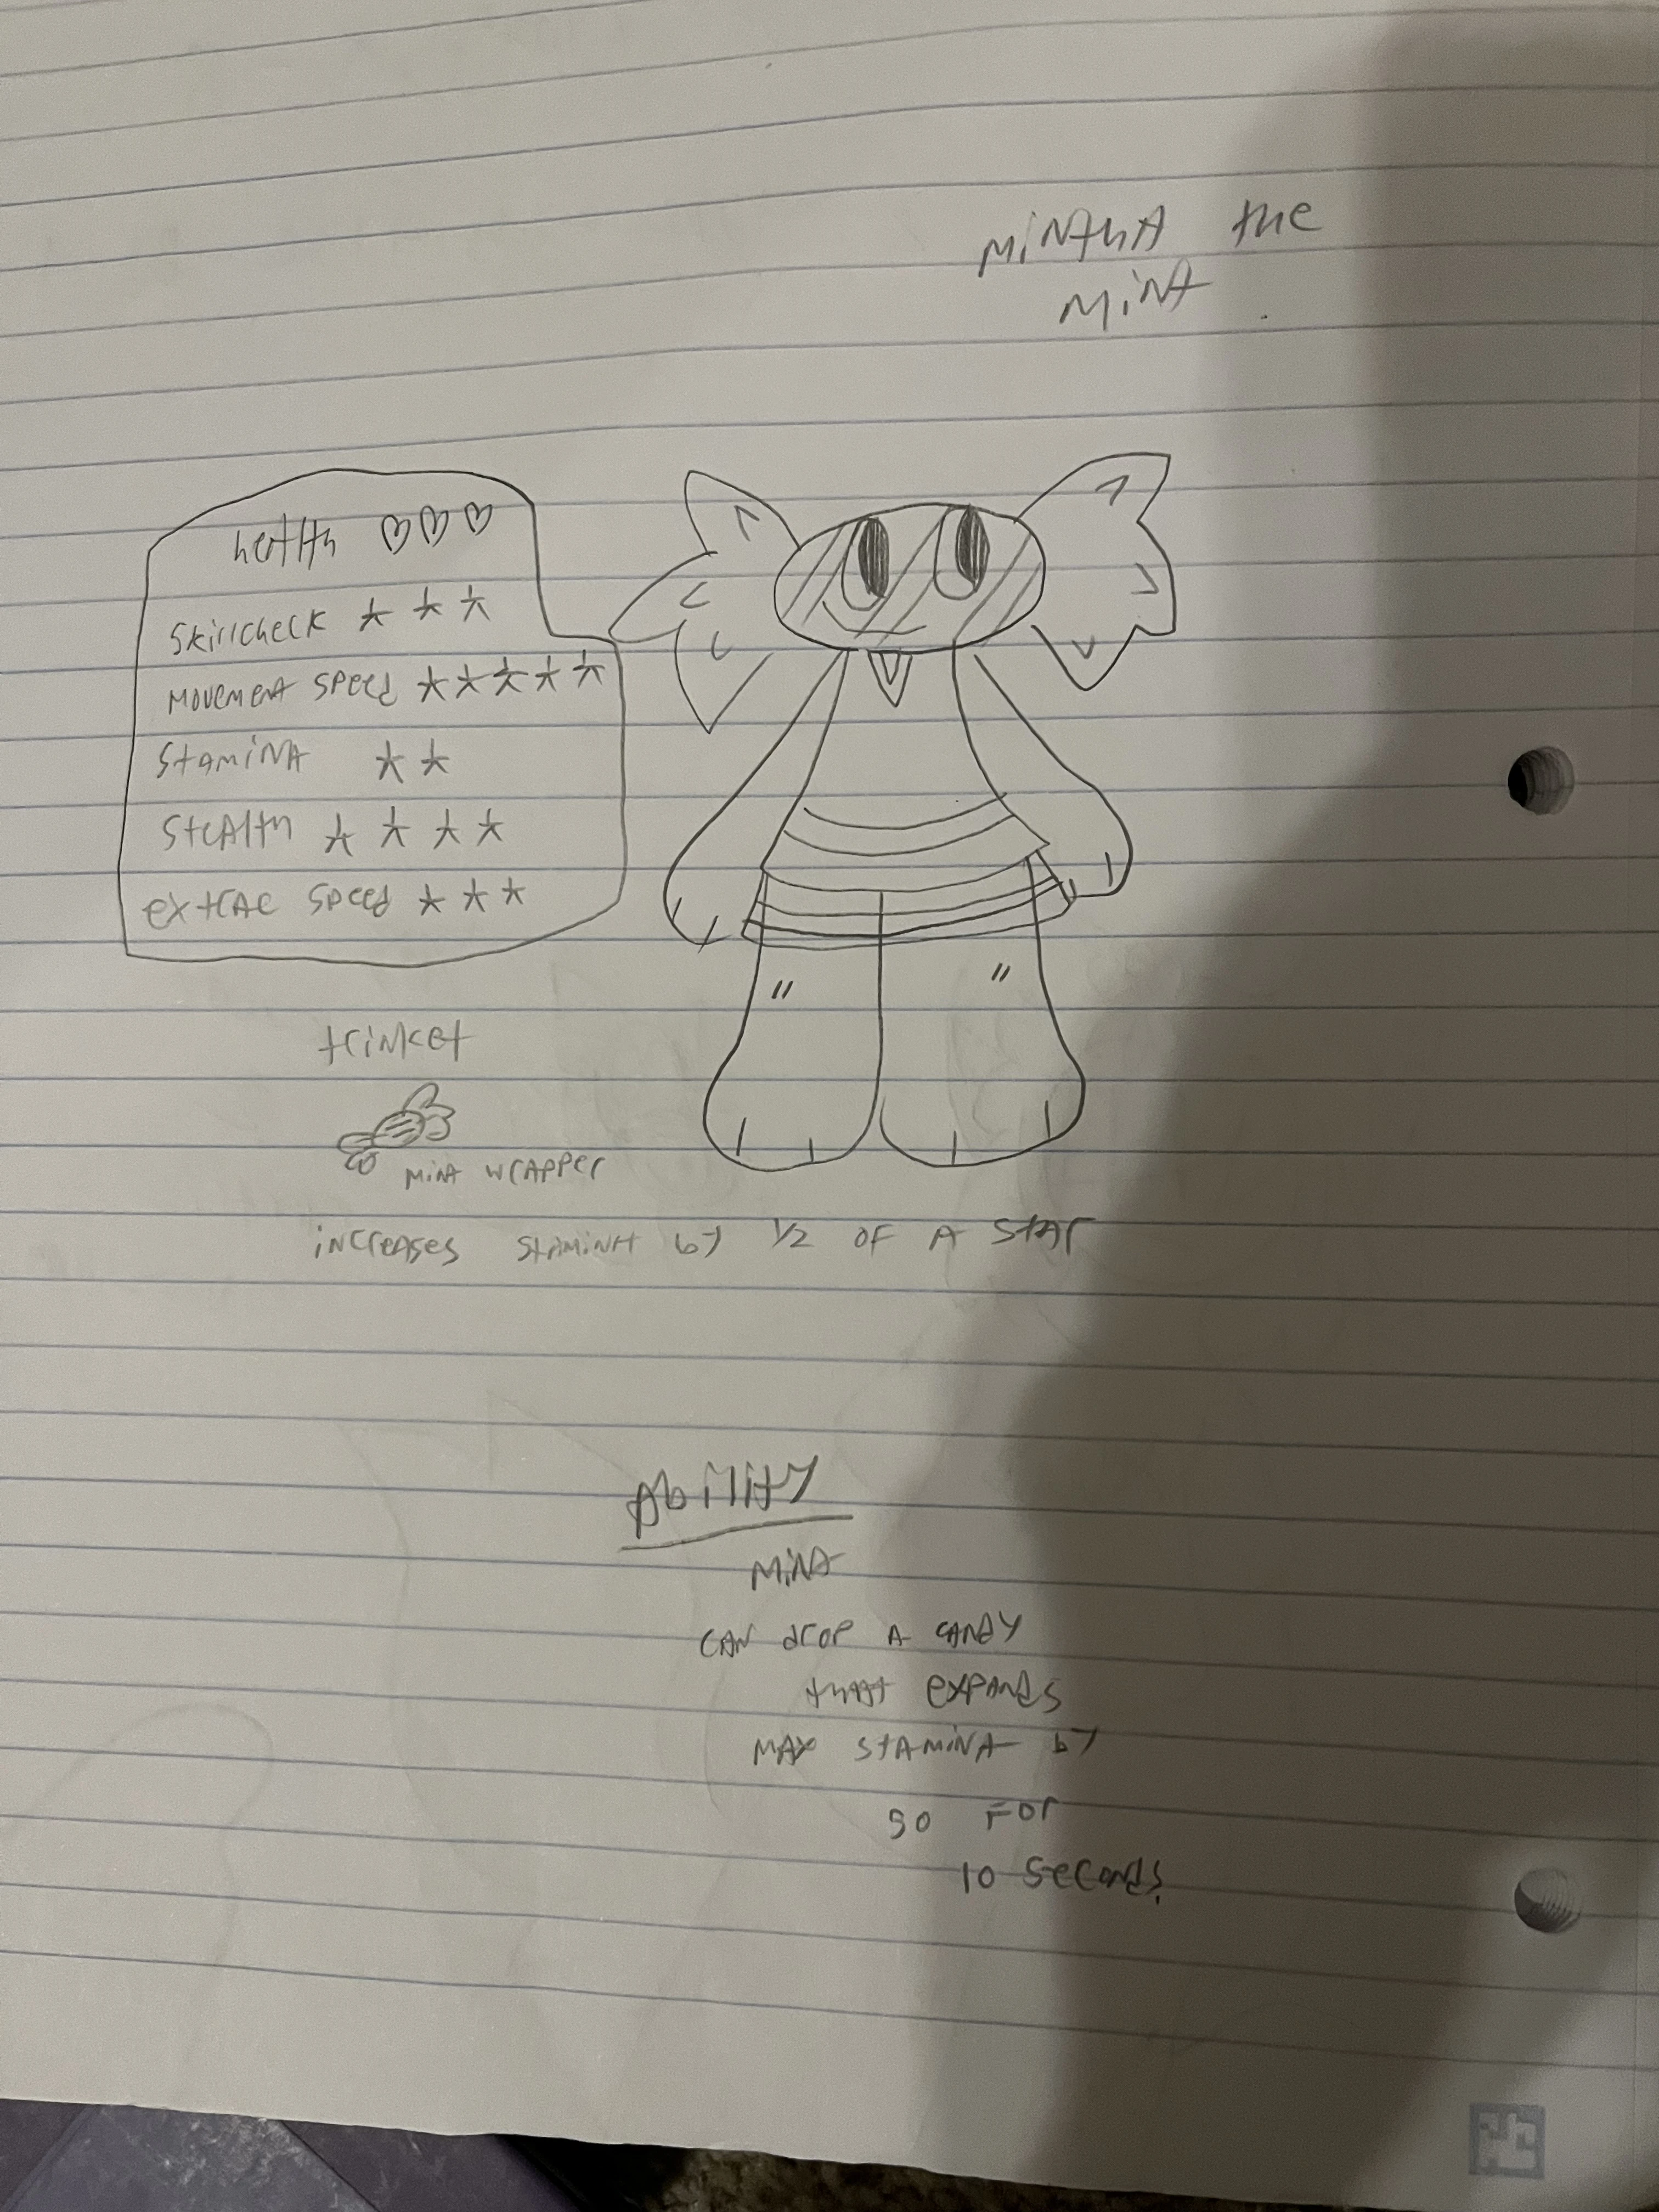 MiNthA the
MiNt
heAlth ♡♡♡
Skillcheck ★ ★ ★
MOVEMENt SPEEd ★★★★★
StAMiNA ★★
SteAlth ★ ★ ★ ★
extrAc SPeed ★ ★ ★
trinket
MiNt WrAPPer
iNCreASES StAMiNA by 1/2 OF A StAr
Ability
MiNt
CAN drOP A CANdY
thAt EXPANdS
MAX StAMiNA by
50 FOr
10 SeCONdS